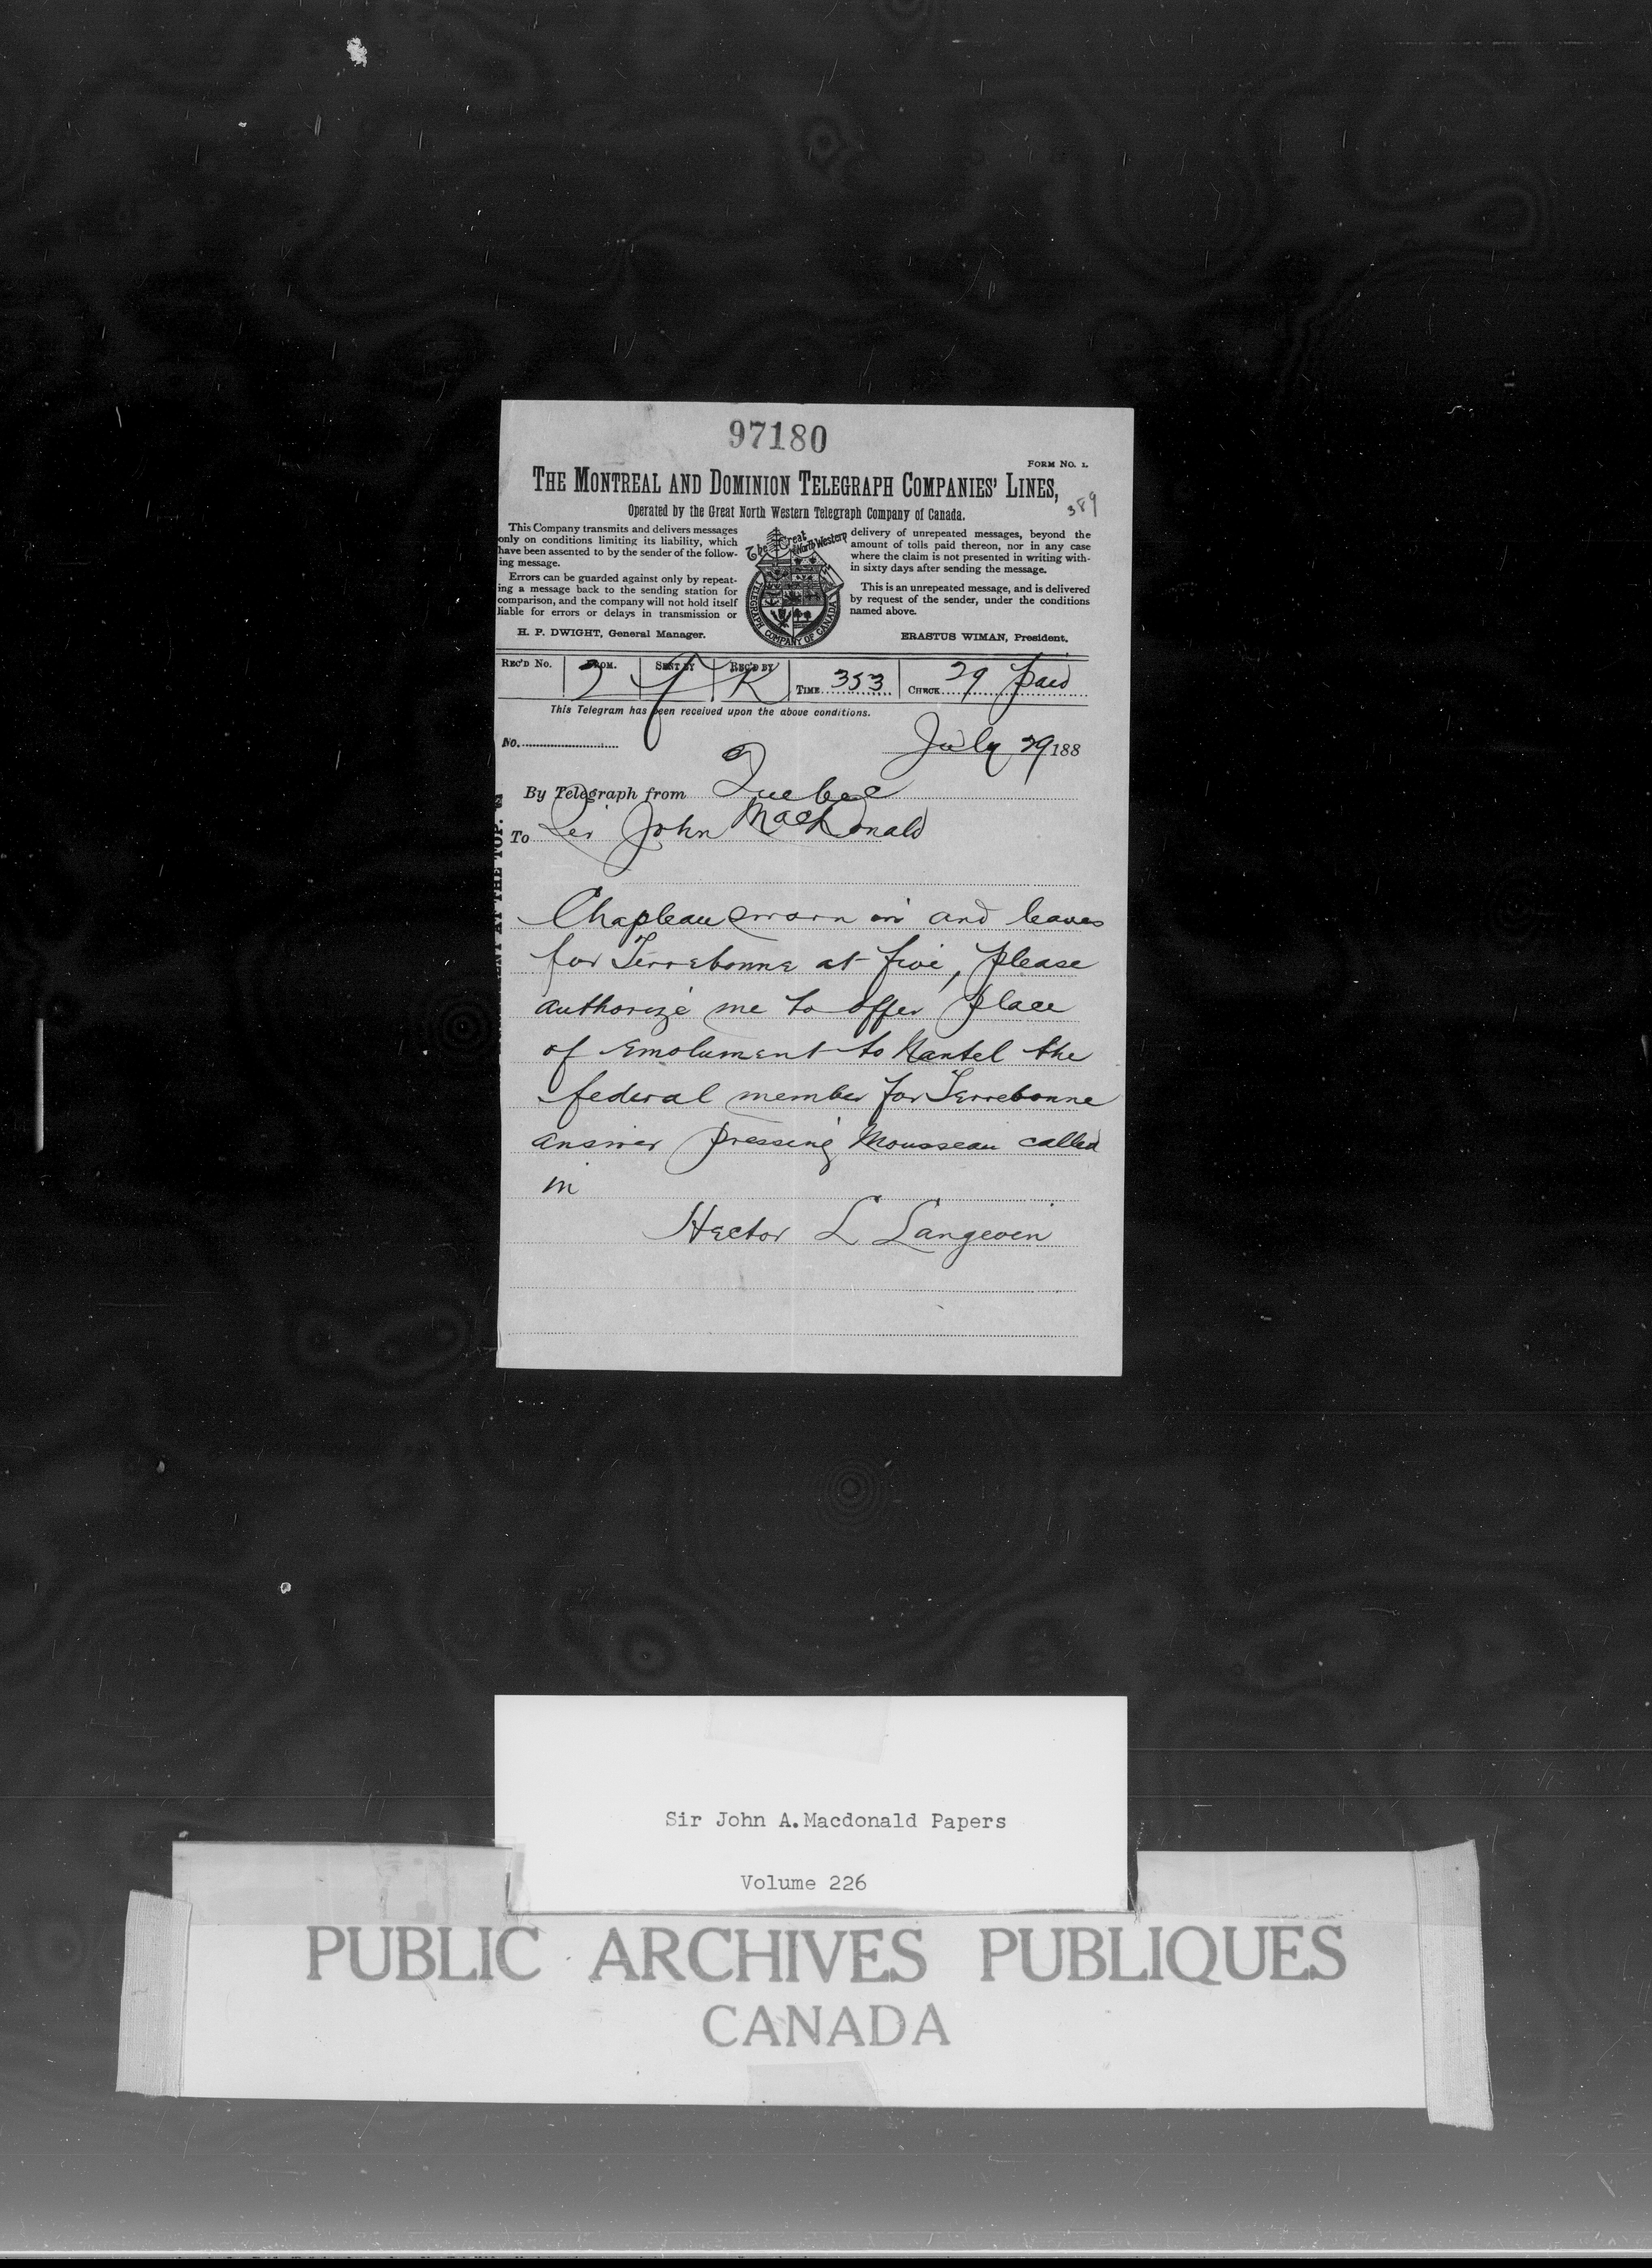 97180
FORM NO. 1.
THE MONTREAL AND DOMINION TELEGRAPH COMPANIES' LINES,
389
Operated by the Great North Western Telegraph Company of Canada.
This Company transmits and delivers messages
only on conditions limiting its liability, which
have been assented to by the sender of the follow-
ing message.
Errors can be guarded against only by repeat-
ing a message back to the sending station for
comparison, and the company will not hold itself
liable for errors or delays in transmission or
The Great North Western
TELEGRAPH COMPANY OF CANADA
delivery of unrepeated messages, beyond the
amount of tolls paid thereon, nor in any case
where the claim is not presented in writing with-
in sixty days after sending the message.
This is an unrepeated message, and is delivered
by request of the sender, under the conditions
named above.
H. P. DWIGHT, General Manager.
ERASTUS WIMAN, President.
REC'D No. FROM. SENT BY REC'D BY K TIME 353 CHECK 29 paid
This Telegram has been received upon the above conditions.
No. July 29 188
By Telegraph from Quebec
To Sir John MacDonald
AT THE TOP.
Chapleau sworn in and leaves
for Terrebonne at five, please
authorize me to offer place
of emolument to Nantel the
federal member for Terrebonne
answer pressing Mousseau called
in
Hector L Langevin
Sir John A. Macdonald Papers
Volume 226
PUBLIC ARCHIVES PUBLIQUES
CANADA